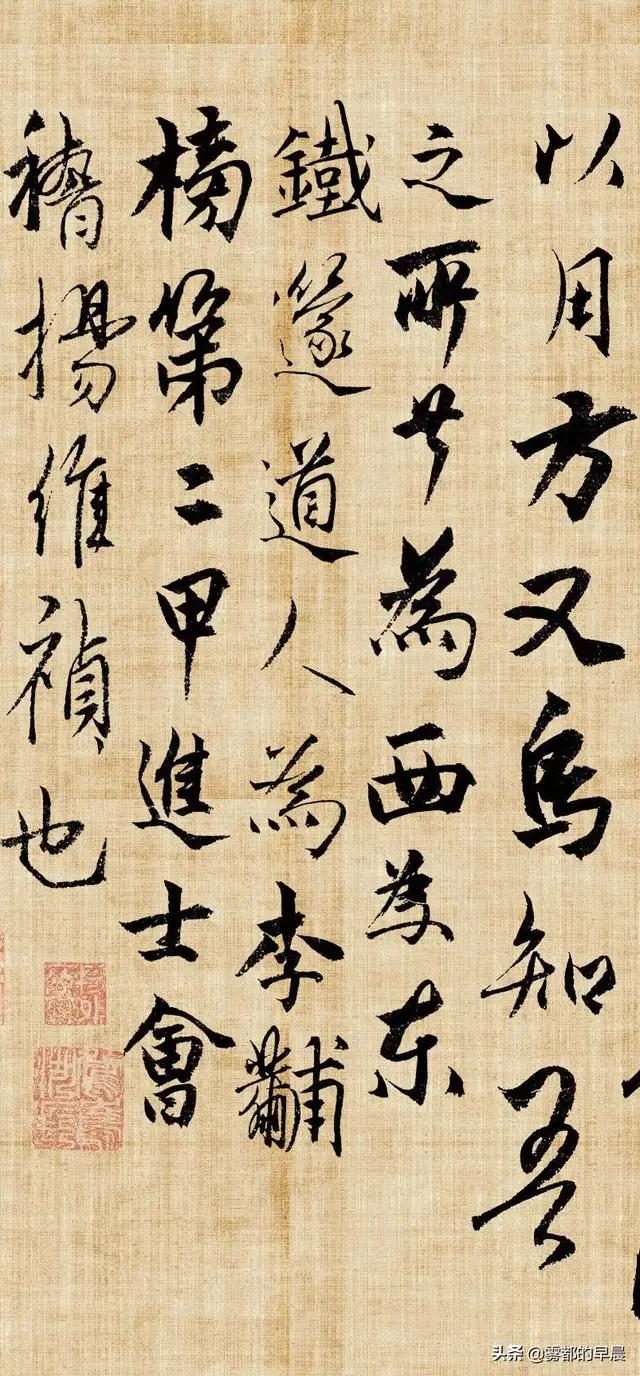 以用方又烏知吾
之所為西為東
鐵篴道人為李黼
榜第二甲進士會
稽楊維禎也
头条 @雾都的早晨